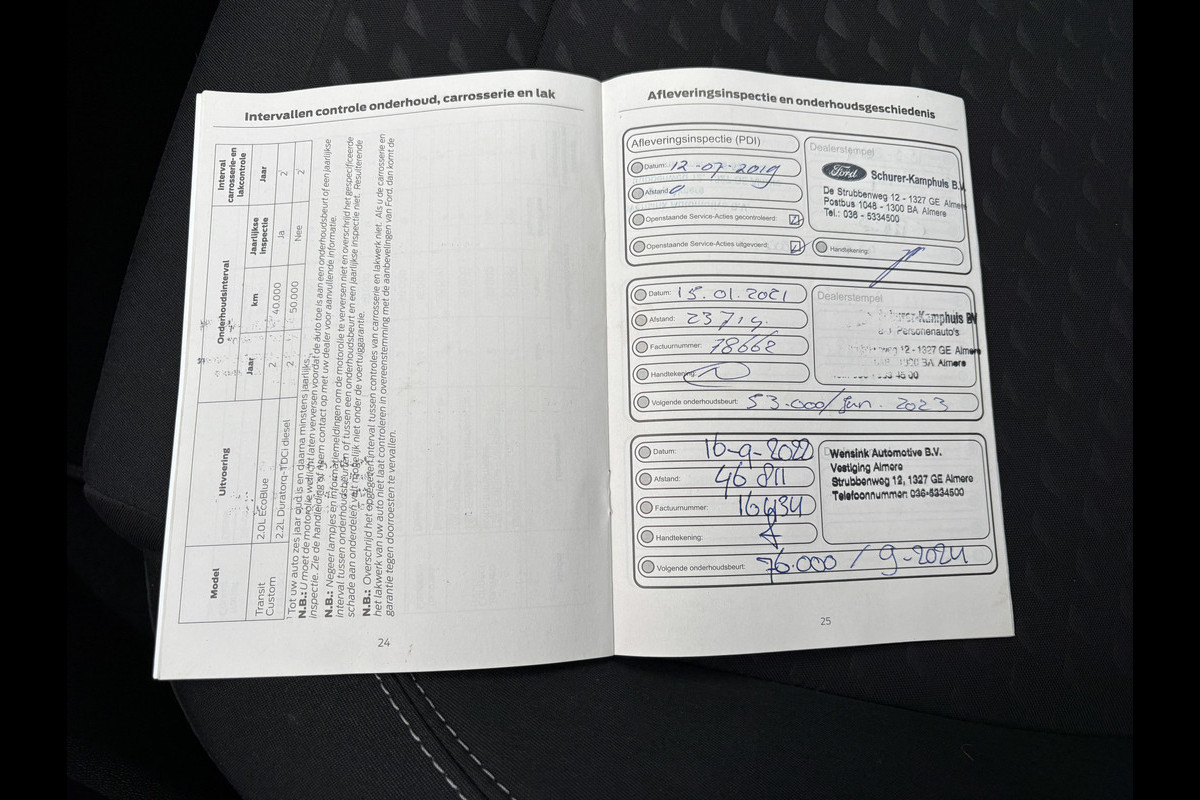 Intervallen controle onderhoud, carrosserie en lak
Model
Uitvoering
Onderhoudsinterval
Interval carrosserie-en lakcontrole
Jaar
km
Jaarlijkse inspectie
Jaar
Transit Custom
2.0L EcoBlue
2
40.000
Ja
2
2.2L Duratorq-TDCi diesel
2
50.000
Nee
2
Tot uw auto zes jaar oud is en daarna minstens jaarlijks.
N.B.: U moet de motorolie wellicht laten verversen voordat de auto toe is aan een onderhoudsbeurt of een jaarlijkse
inspectie. Zie de handleiding of neem contact op met uw dealer voor aanvullende informatie.
N.B.: Negeer lampjes en informatiemeldingen om de motorolie te verversen niet en overschrijd het gespecificeerde
interval tussen onderhoudsbeurten of tussen een onderhoudsbeurt en een jaarlijkse inspectie niet. Resulterende
schade aan onderdelen valt mogelijk niet onder de voertuiggarantie.
N.B.: Overschrijd het opgegeven interval tussen controles van carrosserie en lakwerk niet. Als u de carrosserie en
het lakwerk van uw auto niet laat controleren in overeenstemming met de aanbevelingen van Ford, dan komt de
garantie tegen doorroesten te vervallen.
24
Afleveringsinspectie en onderhoudsgeschiedenis
Afleveringsinspectie (PDI)
Datum: 12-07-2019
Afstand: 0
Openstaande Service-Acties gecontroleerd:
Openstaande Service-Acties uitgevoerd:
Dealerstempel
Ford Schurer-Kamphuis B.V.
De Strubbenweg 12 - 1327 GE Almere
Postbus 1048 - 1300 BA Almere
Tel.: 036 - 5334500
Handtekening:
Datum: 15.01.2021
Afstand: 23719
Factuurnummer: 78662
Handtekening:
Volgende onderhoudsbeurt: 53.000/jun. 2023
Dealerstempel
Schurer-Kamphuis BV
Personenauto's
12 - 1327 GE Almere
BA Almere
45 00
Datum: 16-9-2022
Afstand: 46811
Factuurnummer: 16434
Handtekening:
Volgende onderhoudsbeurt: 76.000 / 9-2024
Wensink Automotive B.V.
Vestiging Almere
Strubbenweg 12, 1327 GE Almere
Telefoonnummer: 036-5334500
25